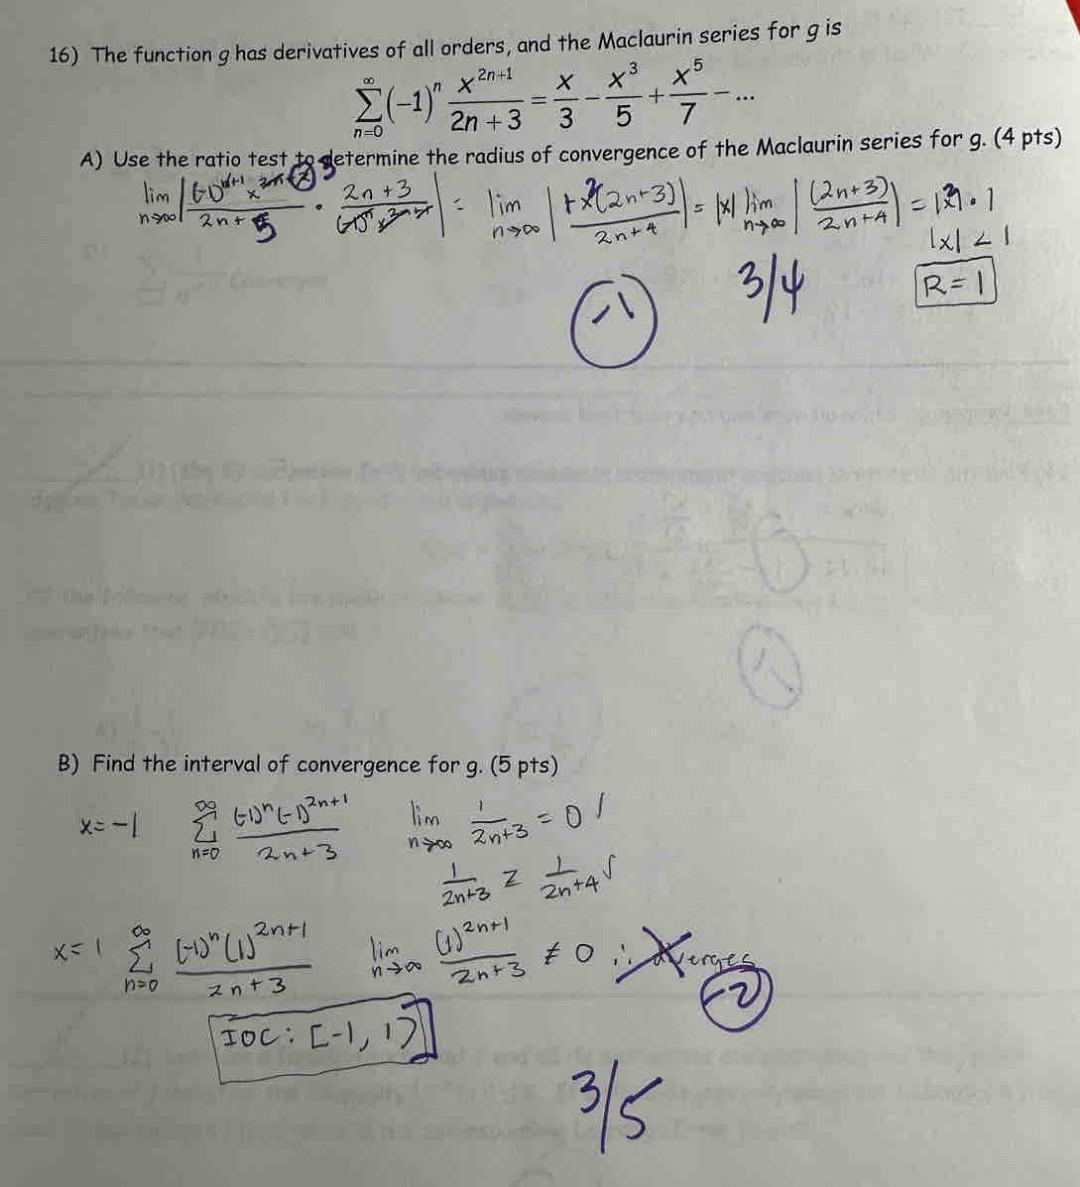 16) The function g has derivatives of all orders, and the Maclaurin series for g is
∞ Σ n=0 (-1)^n x^(2n+1) / (2n + 3) = x/3 - x^3/5 + x^5/7 - ...
A) Use the ratio test to determine the radius of convergence of the Maclaurin series for g. (4 pts)
lim n→∞ | (-1)^(n+1) x^(2n+3) / (2n+5) · (2n+3) / ((-1)^n x^(2n+1)) | = lim n→∞ | x^2(2n+3) / (2n+4) | = |x| lim n→∞ | (2n+3) / (2n+4) | = |x^2| · 1
|x| < 1
-1
3/4
R = 1
B) Find the interval of convergence for g. (5 pts)
x = -1 ∞ Σ n=0 (-1)^n (-1)^(2n+1) / (2n+3) lim n→∞ 1/(2n+3) = 0 ✓
1/(2n+3) ≥ 1/(2n+4) ✓
x = 1 ∞ Σ n=0 (-1)^n (1)^(2n+1) / (2n+3) lim n→∞ (1)^(2n+1) / (2n+3) ≠ 0 ∴ diverges
-2
IOC: [-1, 1)]
3/5